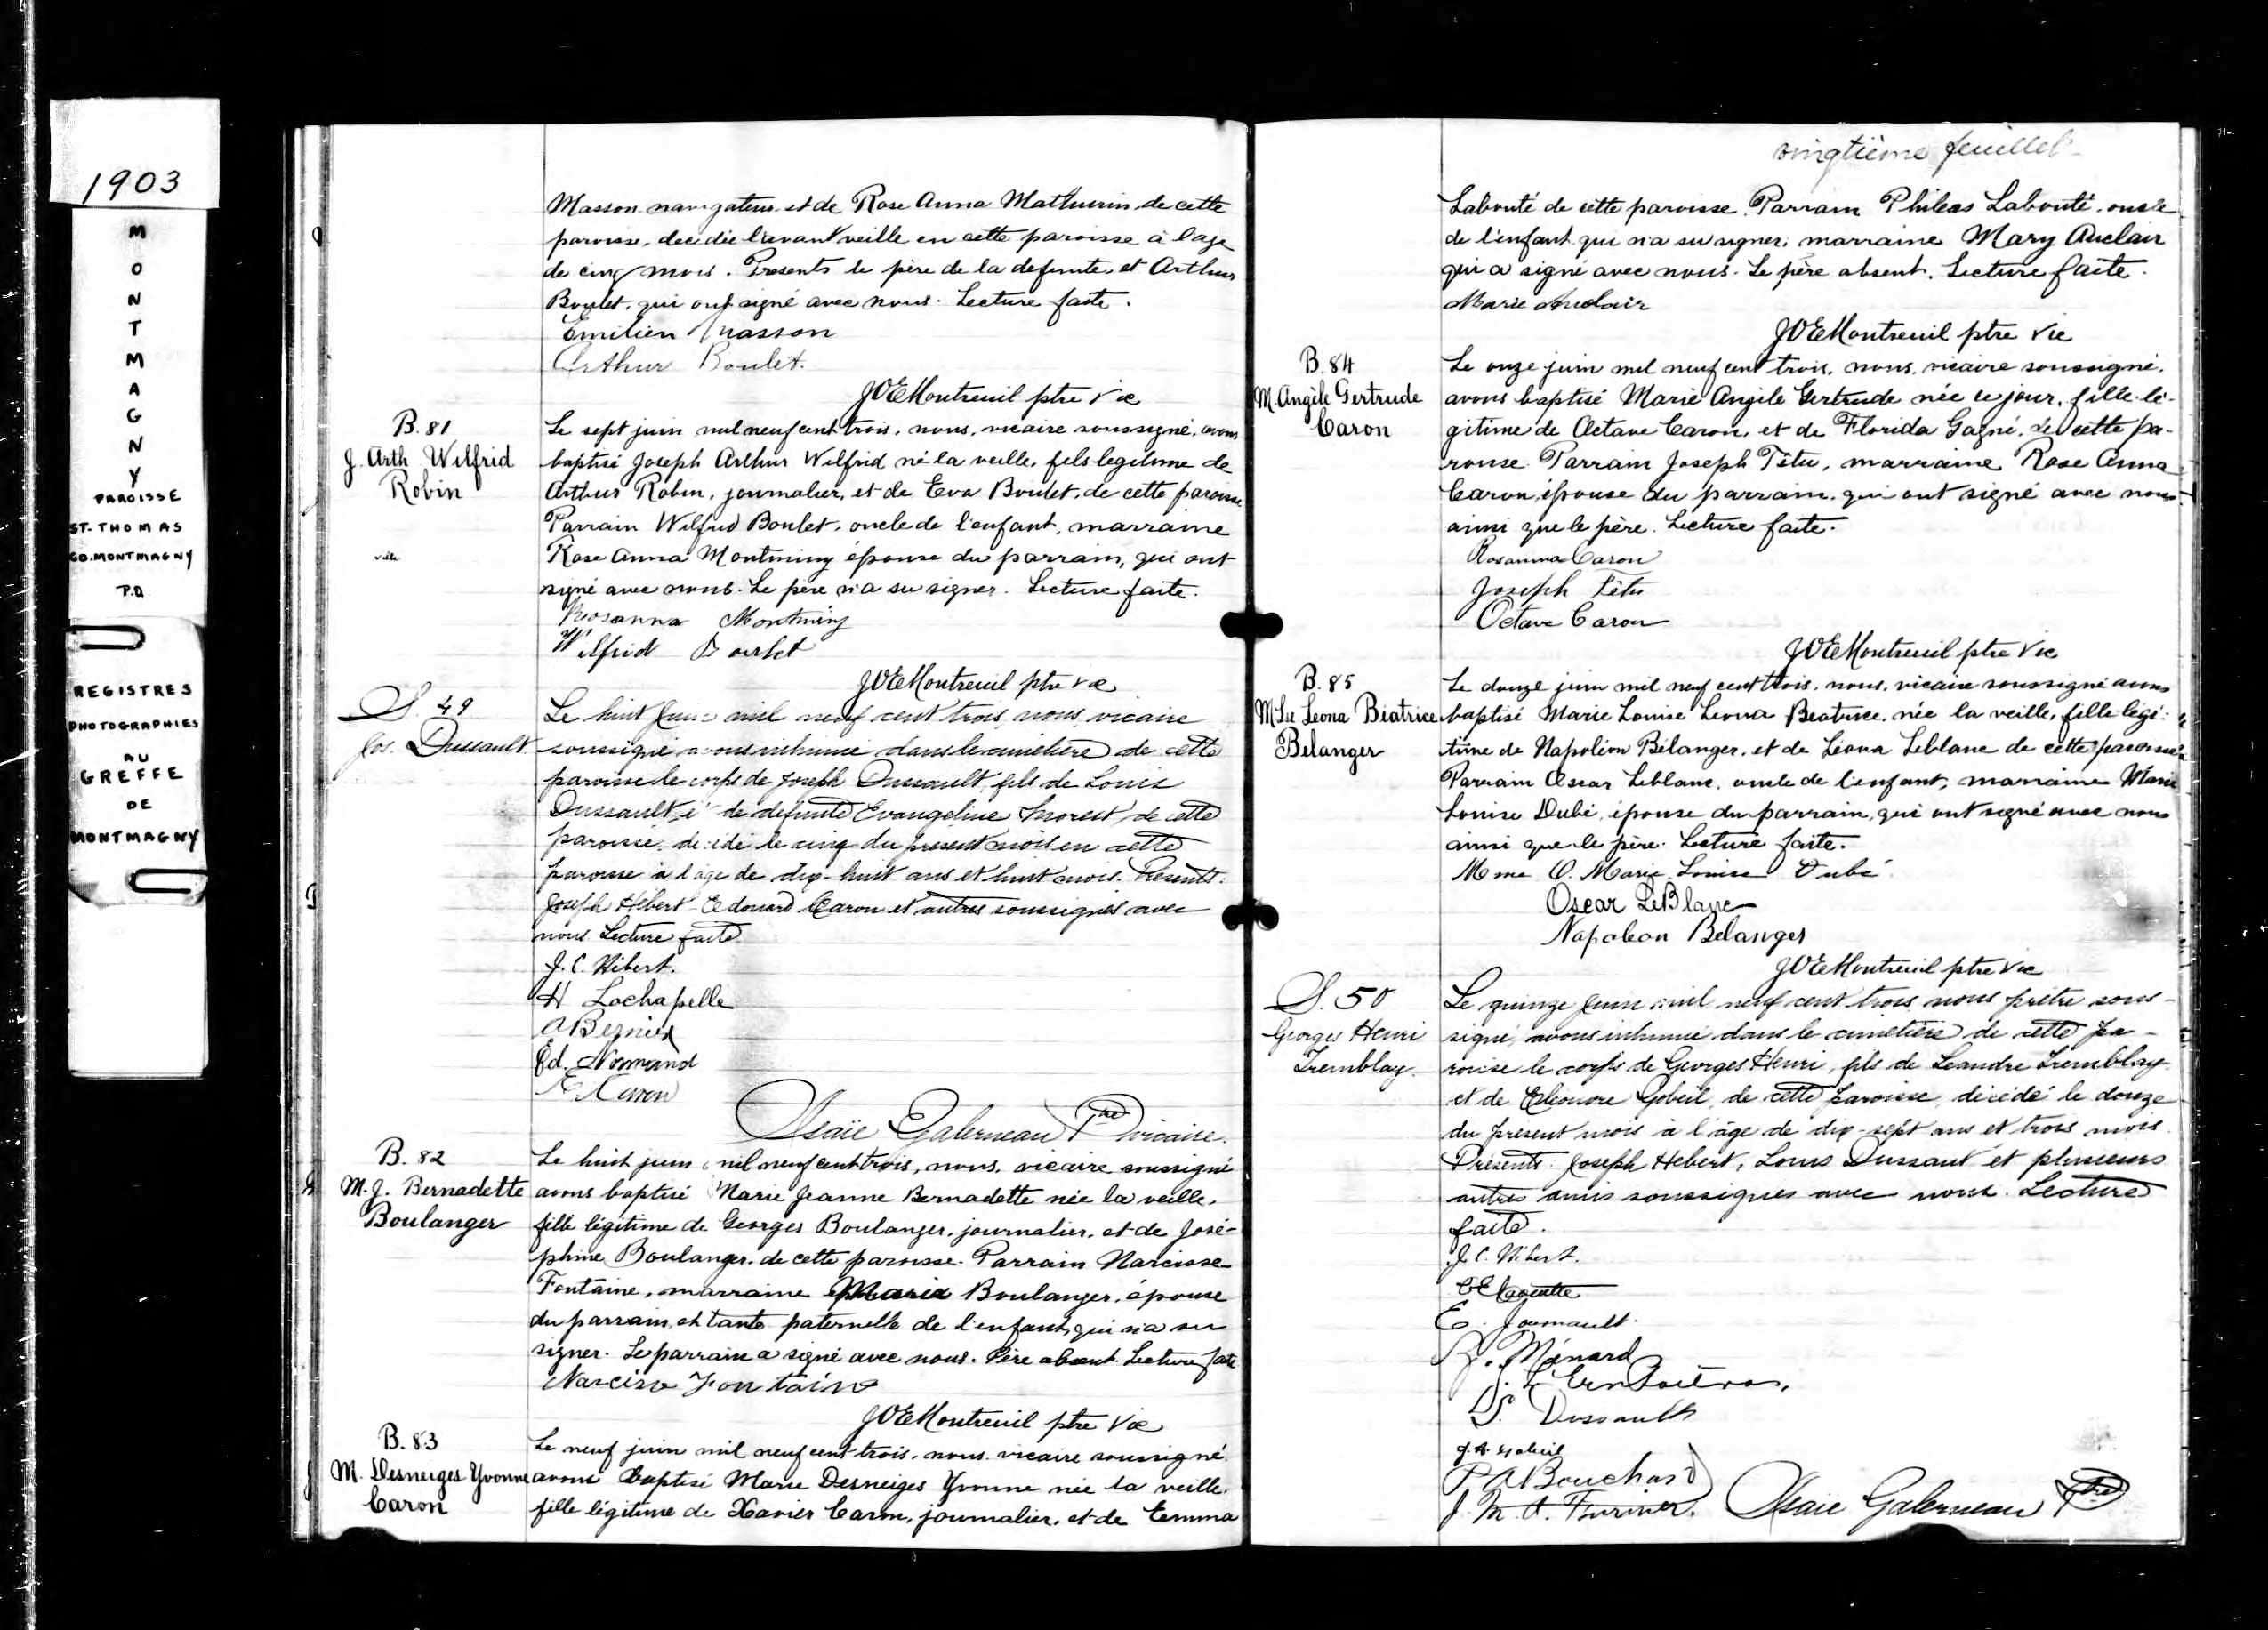 1903
MONTMAGNY
PAROISSE
ST. THOMAS
CO. MONTMAGNY
P.Q.
REGISTRES
PHOTOGRAPHIES
AU
GREFFE
DE
MONTMAGNY
Masson navigateur et de Rose Anna Mathurin de cette
paroisse, décédée l'avant veille en cette paroisse à l'age
de cinq mois. Présents le père de la defunte et Arthur
Boulet, qui ont signé avec nous. Lecture faite.
Emilien Masson
Arthur Boulet.
JOEMontreuil ptre Vic
B. 81
J. Arth Wilfrid
Robin
Le sept juin mil neuf cent trois, nous, vicaire soussigné, avons
baptisé Joseph Arthur Wilfrid né la veille, fils legitime de
Arthur Robin, journalier, et de Eva Boulet, de cette paroisse
Parrain Wilfrid Boulet, oncle de l'enfant, marraine
Rose Anna Montminy épouse du parrain, qui ont
signé avec nous. Le père n'a su signer. Lecture faite.
Rosanna Montminy
Wilfrid Boulet
JOEMontreuil ptre Vic
S. 49
Jos. Dussault
Le huit Juin mil neuf cent trois, nous vicaire
soussigné avons inhumé dans le cimetière de cette
paroisse le corps de Joseph Dussault, fils de Louis
Dussault, et de défunte Evangeline de cette
paroisse, décédé le cinq du présent mois en cette
paroisse à l'age de dix-huit ans et huit mois. Présents:
Joseph Hébert Edouard Caron et autres soussignés avec
nous. Lecture faite
J. C. Hébert.
H Lachapelle
A Bernier
Ed. Normand
E. Caron
Isaïe Galerneau Ptre vicaire.
B. 82
M. J. Bernadette
Boulanger
Le huit juin mil neuf cent trois, nous, vicaire soussigné
avons baptisé Marie Jeanne Bernadette née la veille,
fille légitime de Georges Boulanger, journalier, et de José-
phine Boulanger, de cette paroisse. Parrain Narcisse
Fontaine, marraine Maria Boulanger, épouse
du parrain, et tante paternelle de l'enfant, qui n'a su
signer. Le parrain a signé avec nous. Père absent. Lecture faite
Narcisse Fontaine
JOEMontreuil ptre Vic
B. 83
M. Desneiges Yvonne
Caron
Le neuf juin mil neuf cent trois, nous vicaire soussigné
avons baptisé Marie Desneiges Yvonne née la veille,
fille légitime de Xavier Caron, journalier, et de Emma
vingtième feuillet
Labonté de cette paroisse. Parrain Phileas Labonté, oncle
de l'enfant qui n'a su signer, marraine Mary Auclair
qui a signé avec nous. Le père absent. Lecture faite.
Marie Auclair
JOEMontreuil ptre Vic
B. 84
M. Angèle Gertrude
Caron
Le onze juin mil neuf cent trois, nous, vicaire soussigné,
avons baptisé Marie Angèle Gertrude née ce jour, fille lé-
gitime de Octave Caron, et de Florida Gagné, de cette pa-
roisse. Parrain Joseph Têtu, marraine Rose Anna
Caron, épouse du parrain, qui ont signé avec nous
ainsi que le père. Lecture faite.
Rosanna Caron
Joseph Têtu
Octave Caron
JOEMontreuil ptre Vic
B. 85
M Lse Leona Béatrice
Belanger
Le douze juin mil neuf cent trois, nous, vicaire soussigné avons
baptisé Marie Louise Leona Beatrice, née la veille, fille légi-
time de Napoléon Bélanger, et de Léona Leblanc de cette paroisse
Parrain Oscar Leblanc, oncle de l'enfant, marraine Marie
Louise Dubé, épouse du parrain, qui ont signé avec nous
ainsi que le père. Lecture faite.
Mme O. Marie Louise Dubé
Oscar LeBlanc
Napoleon Belanger
JOEMontreuil ptre Vic
S. 50
Georges Henri
Tremblay.
Le quinze Juin mil neuf cent trois nous prêtre sous-
signé, avons inhumé dans le cimetière de cette pa-
roisse le corps de Georges Henri, fils de Léandre Tremblay
et de Eléonore Gobeil, de cette paroisse, décédé le douze
du présent mois à l'âge de dix-sept ans et trois mois.
Présents: Joseph Hebert, Louis Dussaut et plusieurs
autres amis soussignés avec nous. Lecture
faite.
J. C. Hébert.
E. Journault.
Ménard
Dussault
J. A. Gobeil
P A Bouchard
J. M. A. Isaïe Galerneau Ptre